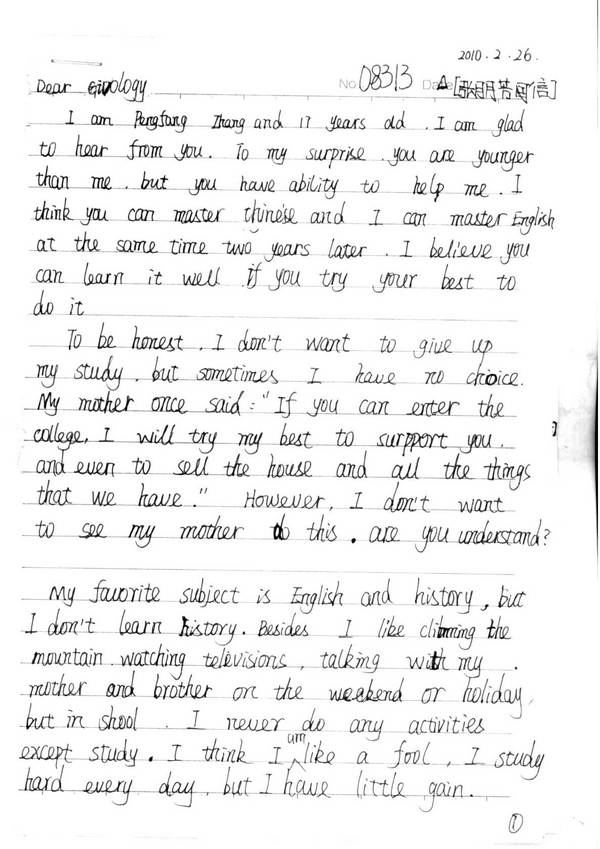 2010.2.26.
No 08313 Date A[张朋芳回信]
Dear
I am Pengfang Zhang and 17 years old. I am glad
to hear from you. To my surprise. you are younger
than me. but you have ability to help me. I
think you can master Chinese and I can master English
at the same time two years later. I believe you
can learn it well if you try your best to
do it
To be honest. I don't want to give up
my study. but sometimes I have no choice.
My mother once said: "If you can enter the
college, I will try my best to surpport you.
and even to sell the house and all the things
that we have." However, I don't want
to see my mother do this. are you understand?
My favorite subject is English and history, but
I don't learn history. Besides I like climming the
mountain. watching televisions, talking with my.
mother and brother on the weekend or holiday,
but in shool. I never do any activities
except study. I think I am like a fool, I study
hard every day, but I have little gain.
①